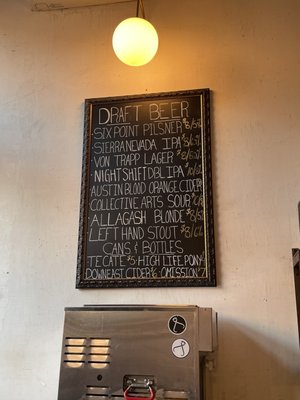 DRAFT BEER
SIX POINT PILSNER $8/
SIERRA NEVADA IPA
VON TRAPP LAGER
NIGHTSHIFT DBL IPA
AUSTIN BLOOD ORANGE CIDER
COLLECTIVE ARTS SOUR
ALLAGASH BLONDE $8/
LEFT HAND STOUT $8/
CANS & BOTTLES
TECATE $5 HIGH LIFE PONY
DOWNEAST CIDER OMISSION $7